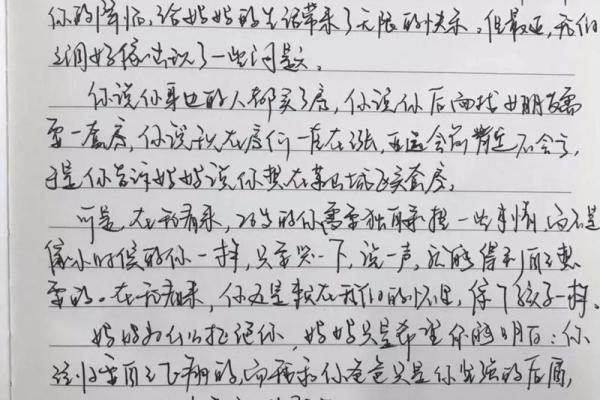 你的陪伴,给妈妈的生活带来了无限的快乐。但最近,我们
之间好像出现了一些问题。
你说你身边的人都买了房,你说你后面找女朋友需
要一套房,你说现在房价一直在涨,亚运会前肯定不会亏,
于是你告诉妈妈说你想在某某城区买套房。
可是,在我看来,28岁的你需要独自承担一些事情,而不是
像小时候的你一样,只要哭一下,说一声,就能得到自己想
要的。在我看来,你还是赖在我们的怀里,像个孩子一样。
妈妈为什么拒绝你,妈妈只是希望你能明白:你
这次要自己飞翔的,而我和你爸爸只是你坚强的后盾,